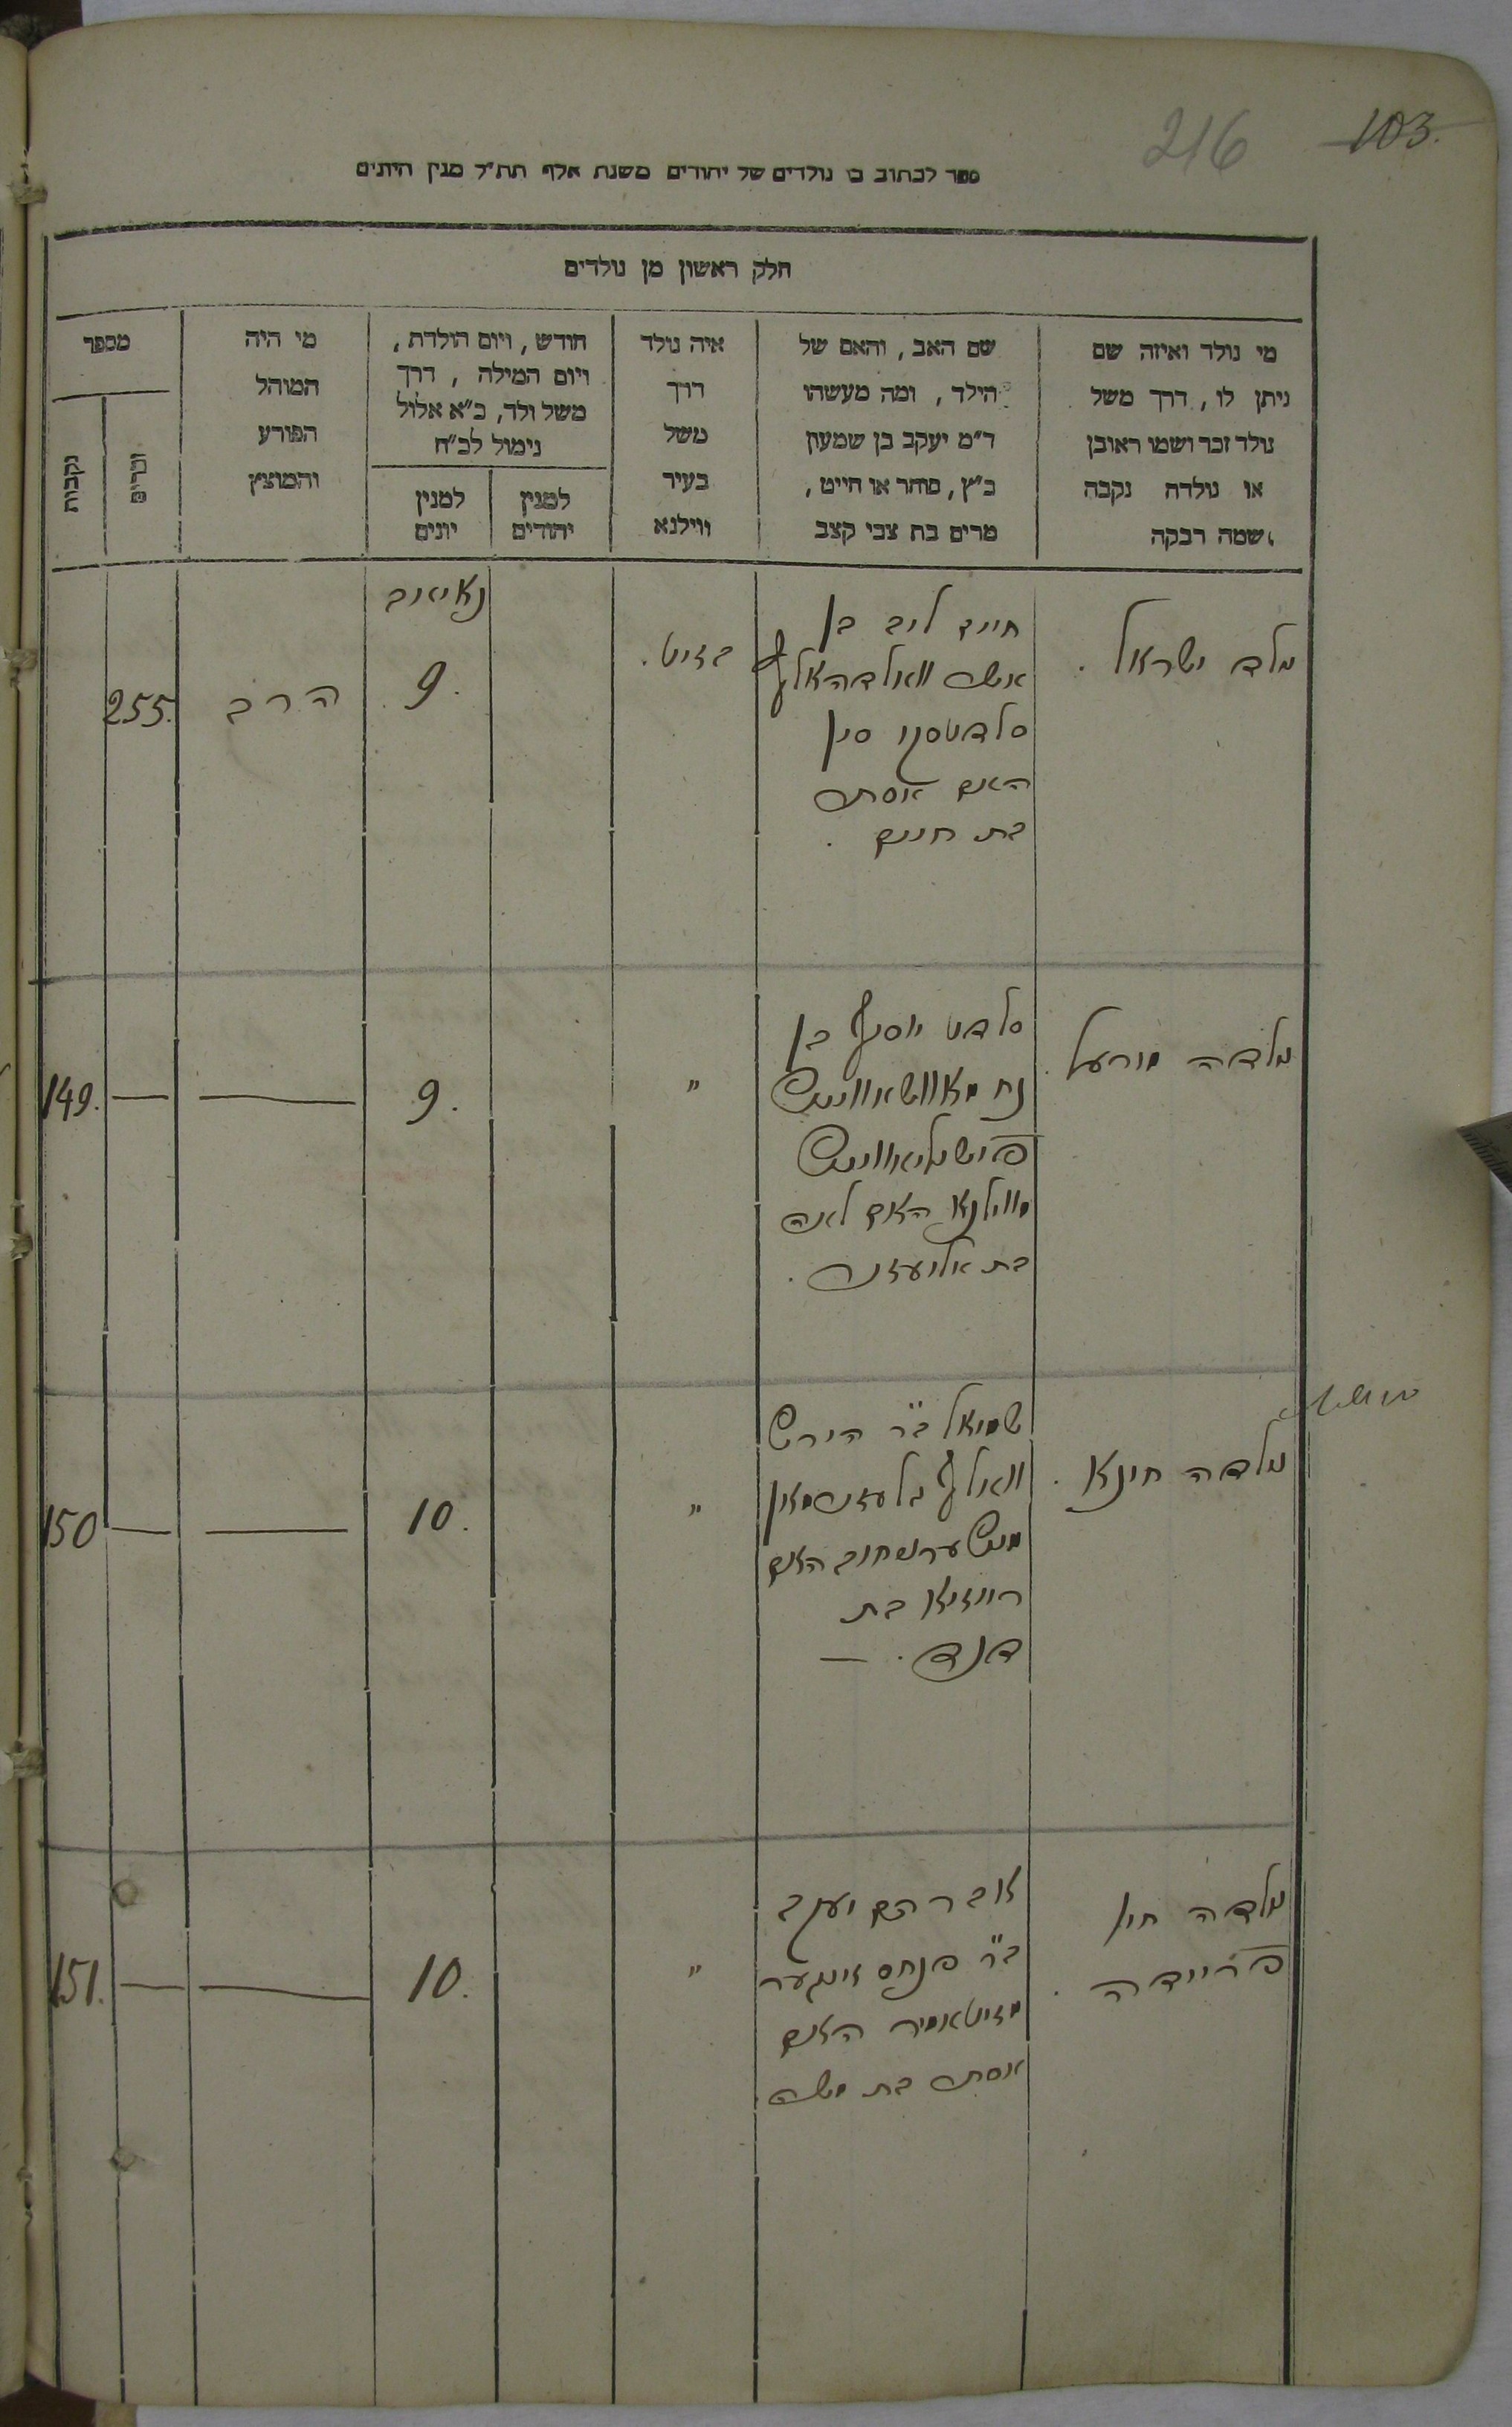 216
103.
ספר לכתוב בו נולדים של יהודים משנת אלף תת״ל מנין היונים
חלק ראשון מן נולדים
מי נולד ואיזה שם
ניתן לו, דרך משל
נולד זכר ושמו ראובן
או נולדה נקבה
ושמה רבקה
שם האב, והאם של
הילד, ומה מעשהו
ד״מ יעקב בן שמעון
כ״ץ, סוחר או חייט,
מרים בת צבי קצב
איה נולד
דרך
משל
בעיר
ווילנא
חודש, ויום הולדת,
ויום המילה, דרך
משל ולד, כ״א אלול
נימול לכ״ח
למנין
יהודים
למנין
יונים
מי היה
המוהל
הפורע
והמוצץ
מספר
זכרים
נקבות
נולד ישראל.
חיים ליב בן
אשר וואלדהאלץ
האם אסתר
בת חיים.
בזיט.
9.
הרב
255.
נולדה
יוסף בן
נח
מווילנא האם לאה
בת אליעזר.
"
9.
149.
נולדה חינא.
שמואל ב״ר הירש
וואלף
האם
רייזא בת
דוד. —
"
10.
150
נולדה חיה
פריידה.
אברהם יעקב
ב״ר פנחס זינגער
מזיטאמיר האם
אסתר בת משה
"
10.
151.